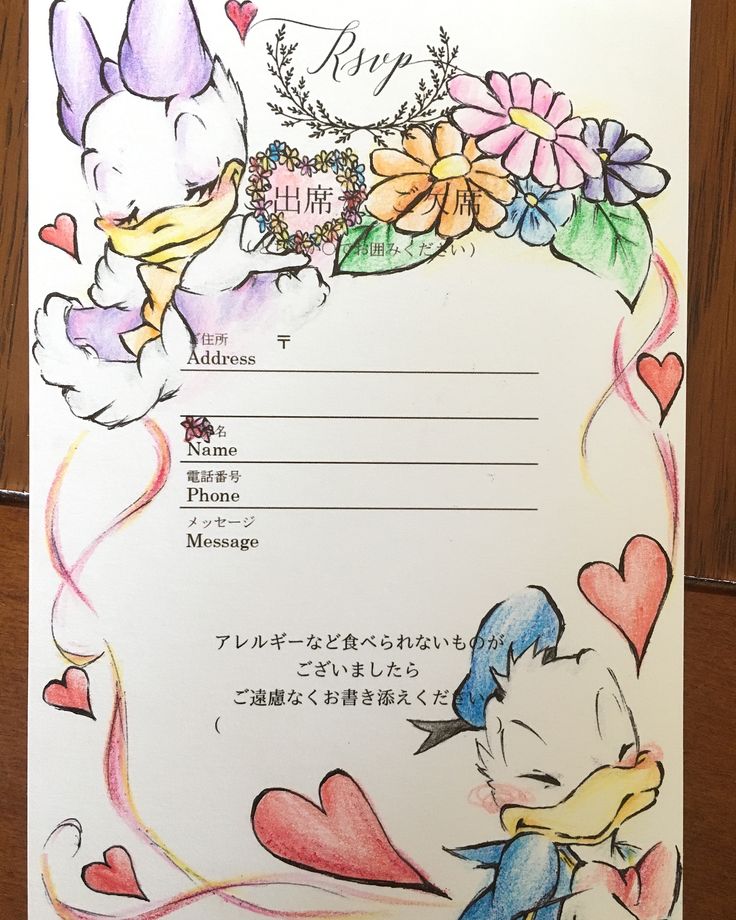 Rsvp
出席 ご欠席
でお囲みください)
ご住所 〒
Address
名
Name
電話番号
Phone
メッセージ
Message
アレルギーなど食べられないものが
ございましたら
ご遠慮なくお書き添えください
(